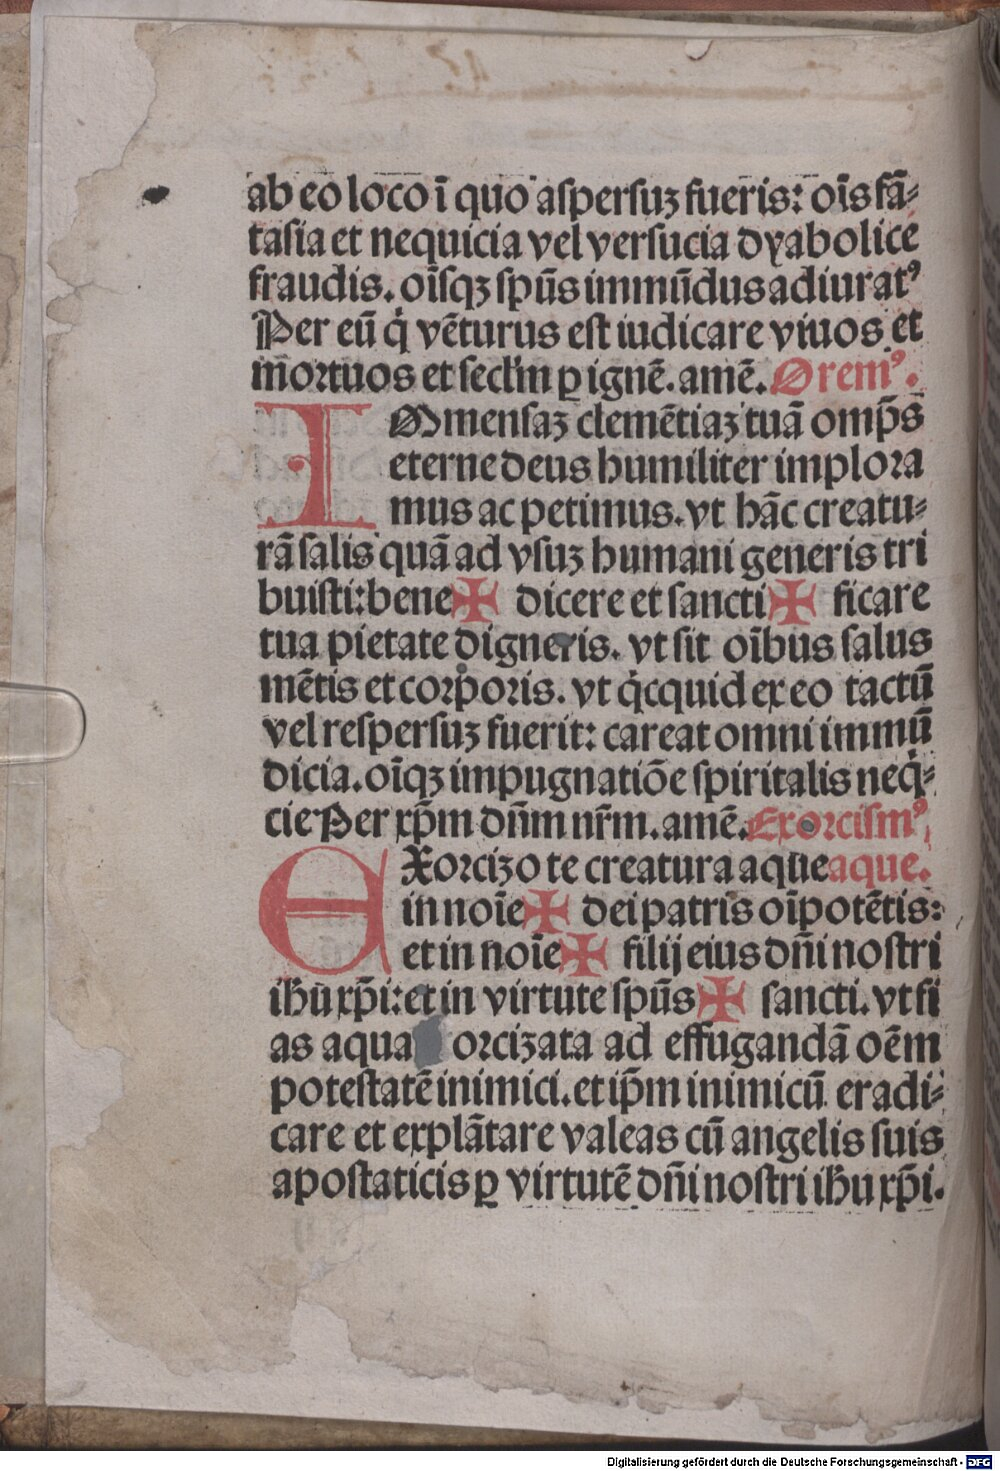 ab eo loco ī quo aſperſuꝫ fueris: oīs fā-
taſia et nequicia vel verſucia dyabolice
fraudis. oīſqꝫ ſpūs immūdus adiuratꝰ
Per eū q̇ vēturus eſt iudicare viuos et
mortuos et ſecl'm ꝑ ignē. amē. Oremꝰ.
IMmenſaꝫ clemētiaꝫ tuā omp̄s
eterne deus humiliter implora
mus ac petimus. vt hāc creatu-
rā ſalis quā ad vſuꝫ humani generis tri
buiſti: bene✠ dicere et ſancti✠ ficare
tua pietate digneris. vt ſit oībus ſalus
mētis et corporis. vt q̇cquid ex eo tactū
vel reſperſuꝫ fuerit: careat omni immū
dicia. oīqꝫ impugnatiōe ſpiritalis neq̇-
cie Per xp̄m dn̄m nr̄m. amē. Exorciſmꝰ
EXorcizo te creatura aque aque.
in noīe✠ dei patris oīpotētis:
et in noīe✠ filij eius dn̄i noſtri
ih̄u xp̄i: et in virtute ſpūs✠ ſancti. vt fi
as aqua orcizata ad effugandā oēm
poteſtatē inimici. et ip̄m inimicū eradi-
care et explātare valeas cū angelis ſuis
apoſtaticis ꝑ virtutē dn̄i noſtri ih̄u xp̄i.
Digitalisierung gefördert durch die Deutsche Forschungsgemeinschaft - DFG